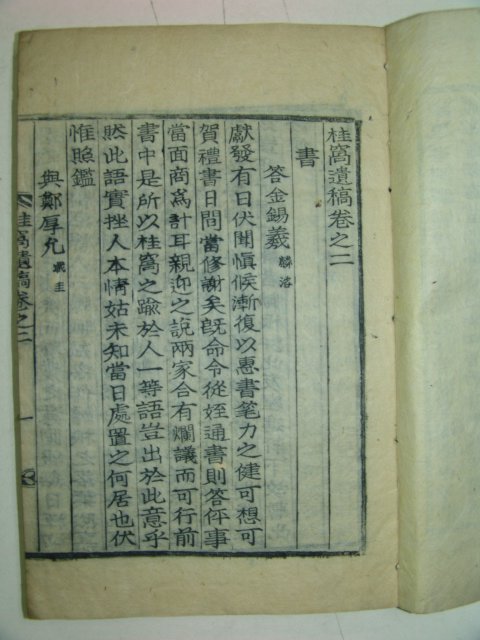 桂窩遺稿卷之二
書
答金錫羲 麟洛
獻發有日伏聞愼候漸復以惠書笔力之健可想可
賀禮書日間當修謝矣旣命令從姪通書則答伻事
當面商爲計耳親迎之說兩家合有爛議而可行前
書中是所以桂窩之踰於人一等語豈出於此意乎
然此語實挫人本情姑未知當日處置之何居也伏
惟照鑑
與鄭厚允 載圭
桂窩遺稿卷之二 一